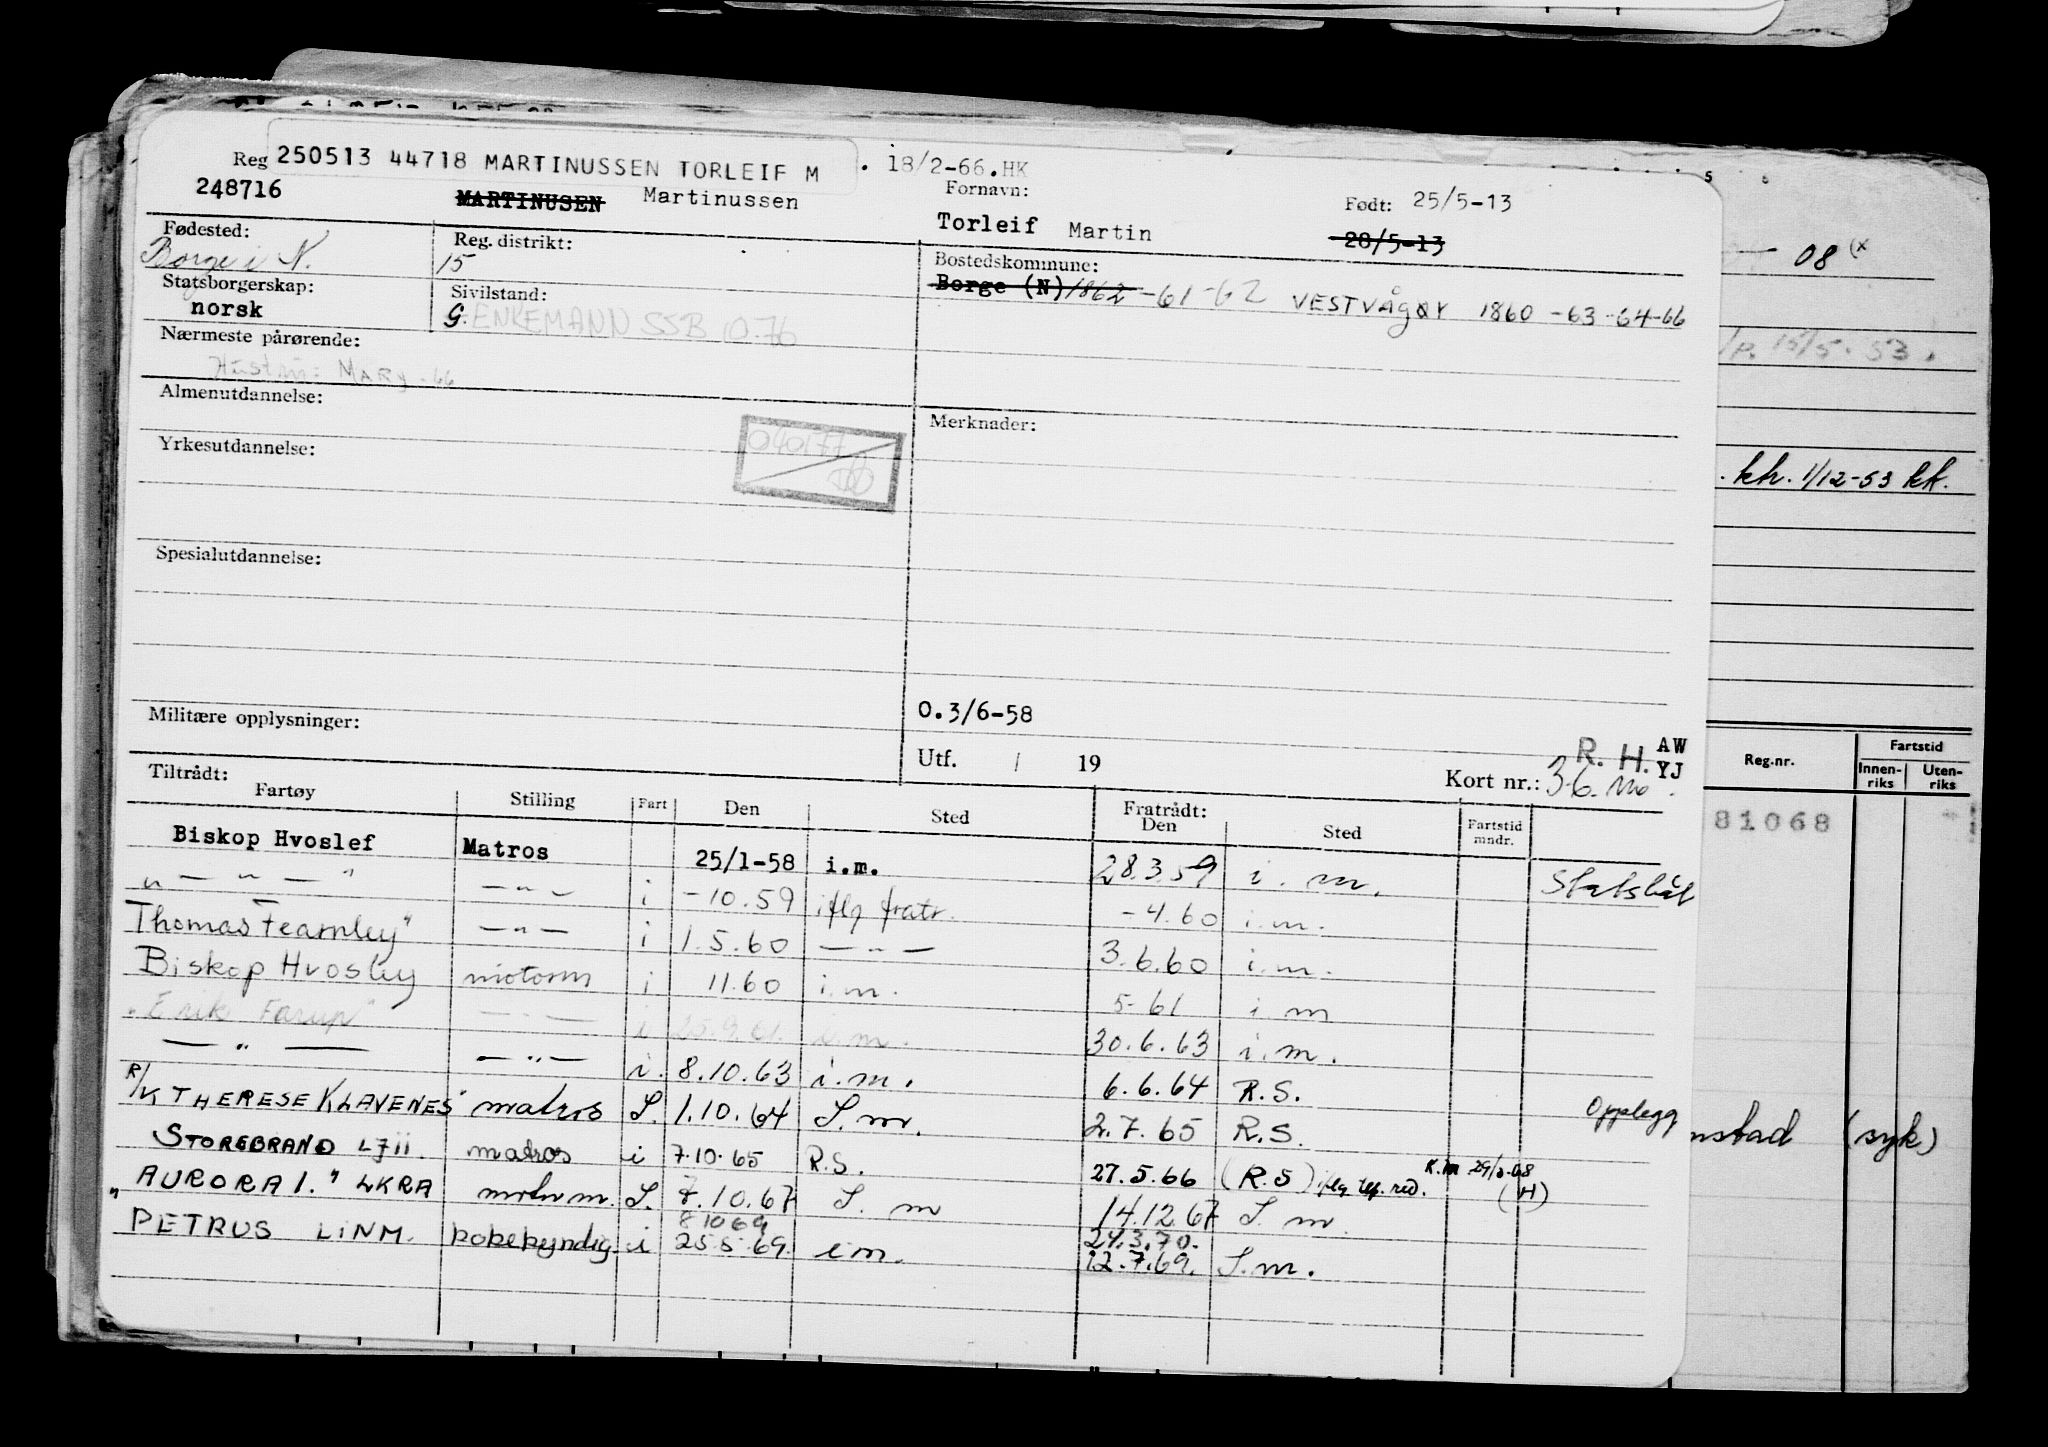 Reg 250513 44718 MARTINUSSEN TORLEIF M . 18/2-66.HK
248716 MARTINUSEN Martinussen Fornavn: Torleif Martin Født: 25/5-13
28/5-13
Fødested: Borge i N. Reg. distrikt: 15 Bostedskommune:
Borge (N) 1862 -61-62 VESTVÅGØY 1860 -63-64-66
Statsborgerskap: norsk Sivilstand: G. ENKEMANN SSB 10.76
Nærmeste pårørende:
Hustru: MARY -66
Almenutdannelse:
Merknader:
Yrkesutdannelse:
040177
Spesialutdannelse:
Militære opplysninger:
O.3/6-58
Utf. / 19
R. H. AW YJ
Kort nr.: 36. mo.
Tiltrådt: Fratrådt:
Fartøy Stilling Fart Den Sted Den Sted Fartstid mndr.
Biskop Hvoslef Matros 25/1-58 i.m. 28.3.59 i. m. Statsbåt
" — " — " — " — i -10.59 iflg fratr. -4.60 i.m.
Thomas Fearnley" — " — i 1.5.60 — " — 3.6.60 i.m.
Biskop Hvosley motorm i 11.60 i.m. 5-61 i m
"Erik Farup" — " — i 25.9.61. i.m. 30.6.63 i.m.
— " — — " — i. 8.10.63 i.m. 6.6.64 R.S.
R/K THERESE KLAVENES" matros S. 1.10.64 S.m. 2.7.65 R.S. Opplegg
STOREBRAND LJII. matros i 7.10.65 R.S. 27.5.66 (R.S) iflg K.M 29/2-68 (H)
" AURORA 1. " LKRA motorm. S. 7.10.67 S. m 14.12.67 S. m.
8 10 69 24.3.70.
PETRUS LINM. kokekyndig i 25.5.69. i m. 12.7.69. S.m.
08 (x
15/5.53.
. kh. 1/12-53 kk.
Reg.nr. Fartstid
Innen-riks Uten-riks
81068
nstad (syk)